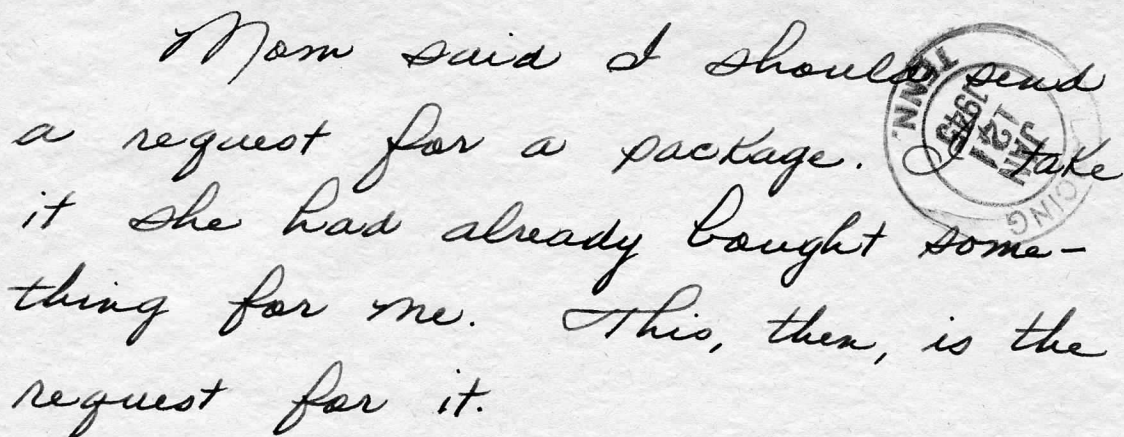 Mom said I should send
a request for a package. I take
it she had already bought some-
thing for me. This, then, is the
request for it.
TENN.
JAN
121
1945
CING